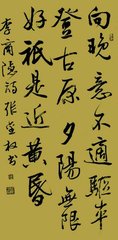 向晚意不適驅車
登古原夕陽無限
好祇是近黄昏
李商隱詩張書